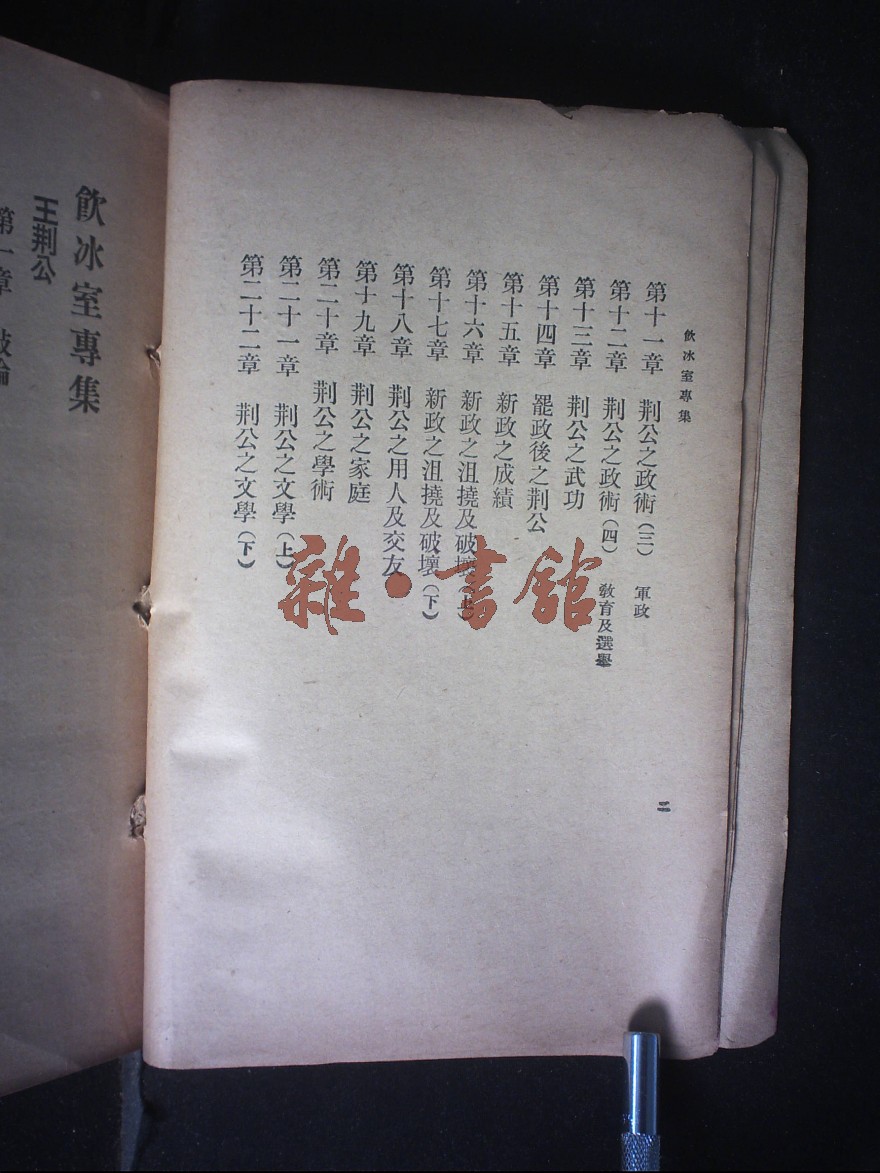 飲冰室專集
第十一章 荆公之政術(三) 軍政
第十二章 荆公之政術(四) 教育及選舉
第十三章 荆公之武功
第十四章 罷政後之荆公
第十五章 新政之成績
第十六章 新政之沮撓及破壞(上)
第十七章 新政之沮撓及破壞(下)
第十八章 荆公之用人及交友
第十九章 荆公之家庭
第二十章 荆公之學術
第二十一章 荆公之文學(上)
第二十二章 荆公之文學(下)
二
飲冰室專集
王荆公
第一章
雜·書館